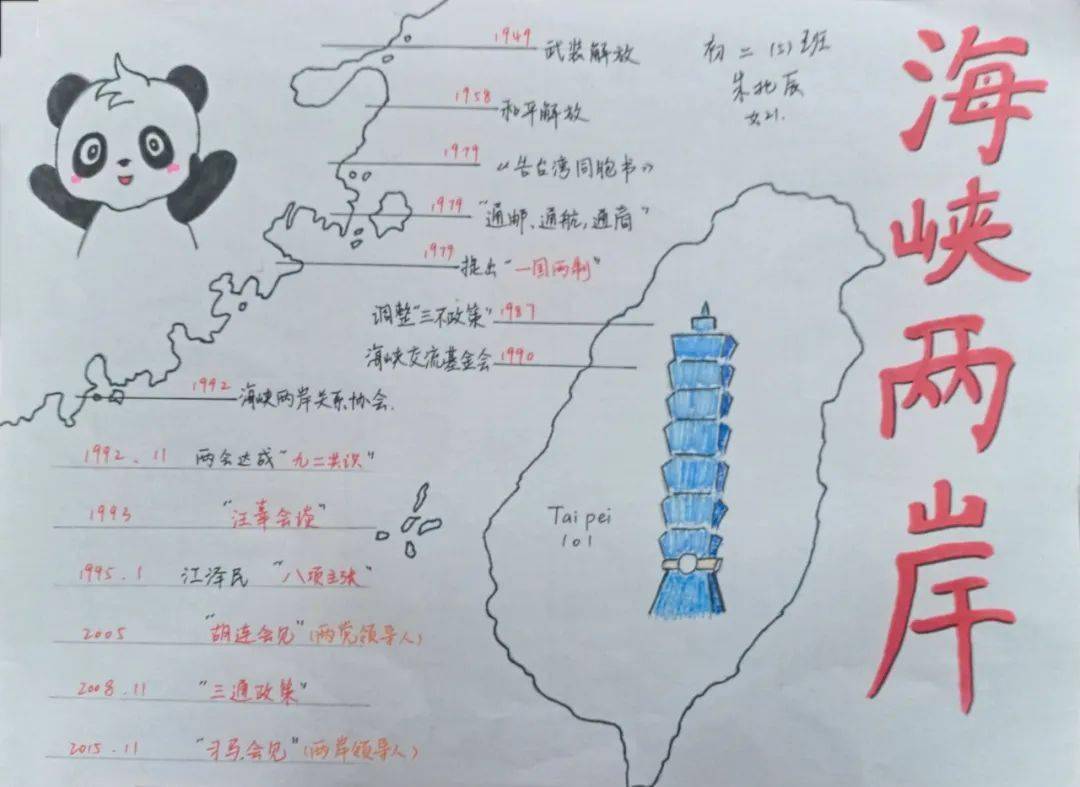 海峡两岸
初二(5)班
朱北辰
女21.
1949 武装解放
1958 和平解放
1979 《告台湾同胞书》
1979 "通邮、通航,通商"
1979 提出"一国两制"
调整"三不政策" 1987
海峡交流基金会 1990
1992 海峡两岸关系协会.
1992.11 两会达成"九二共识"
1993 "汪辜会谈"
1995.1 江泽民 "八项主张"
2005 "胡连会见"(两党领导人)
2008.11 "三通政策"
2015.11 "习马会见"(两岸领导人)
Taipei
101